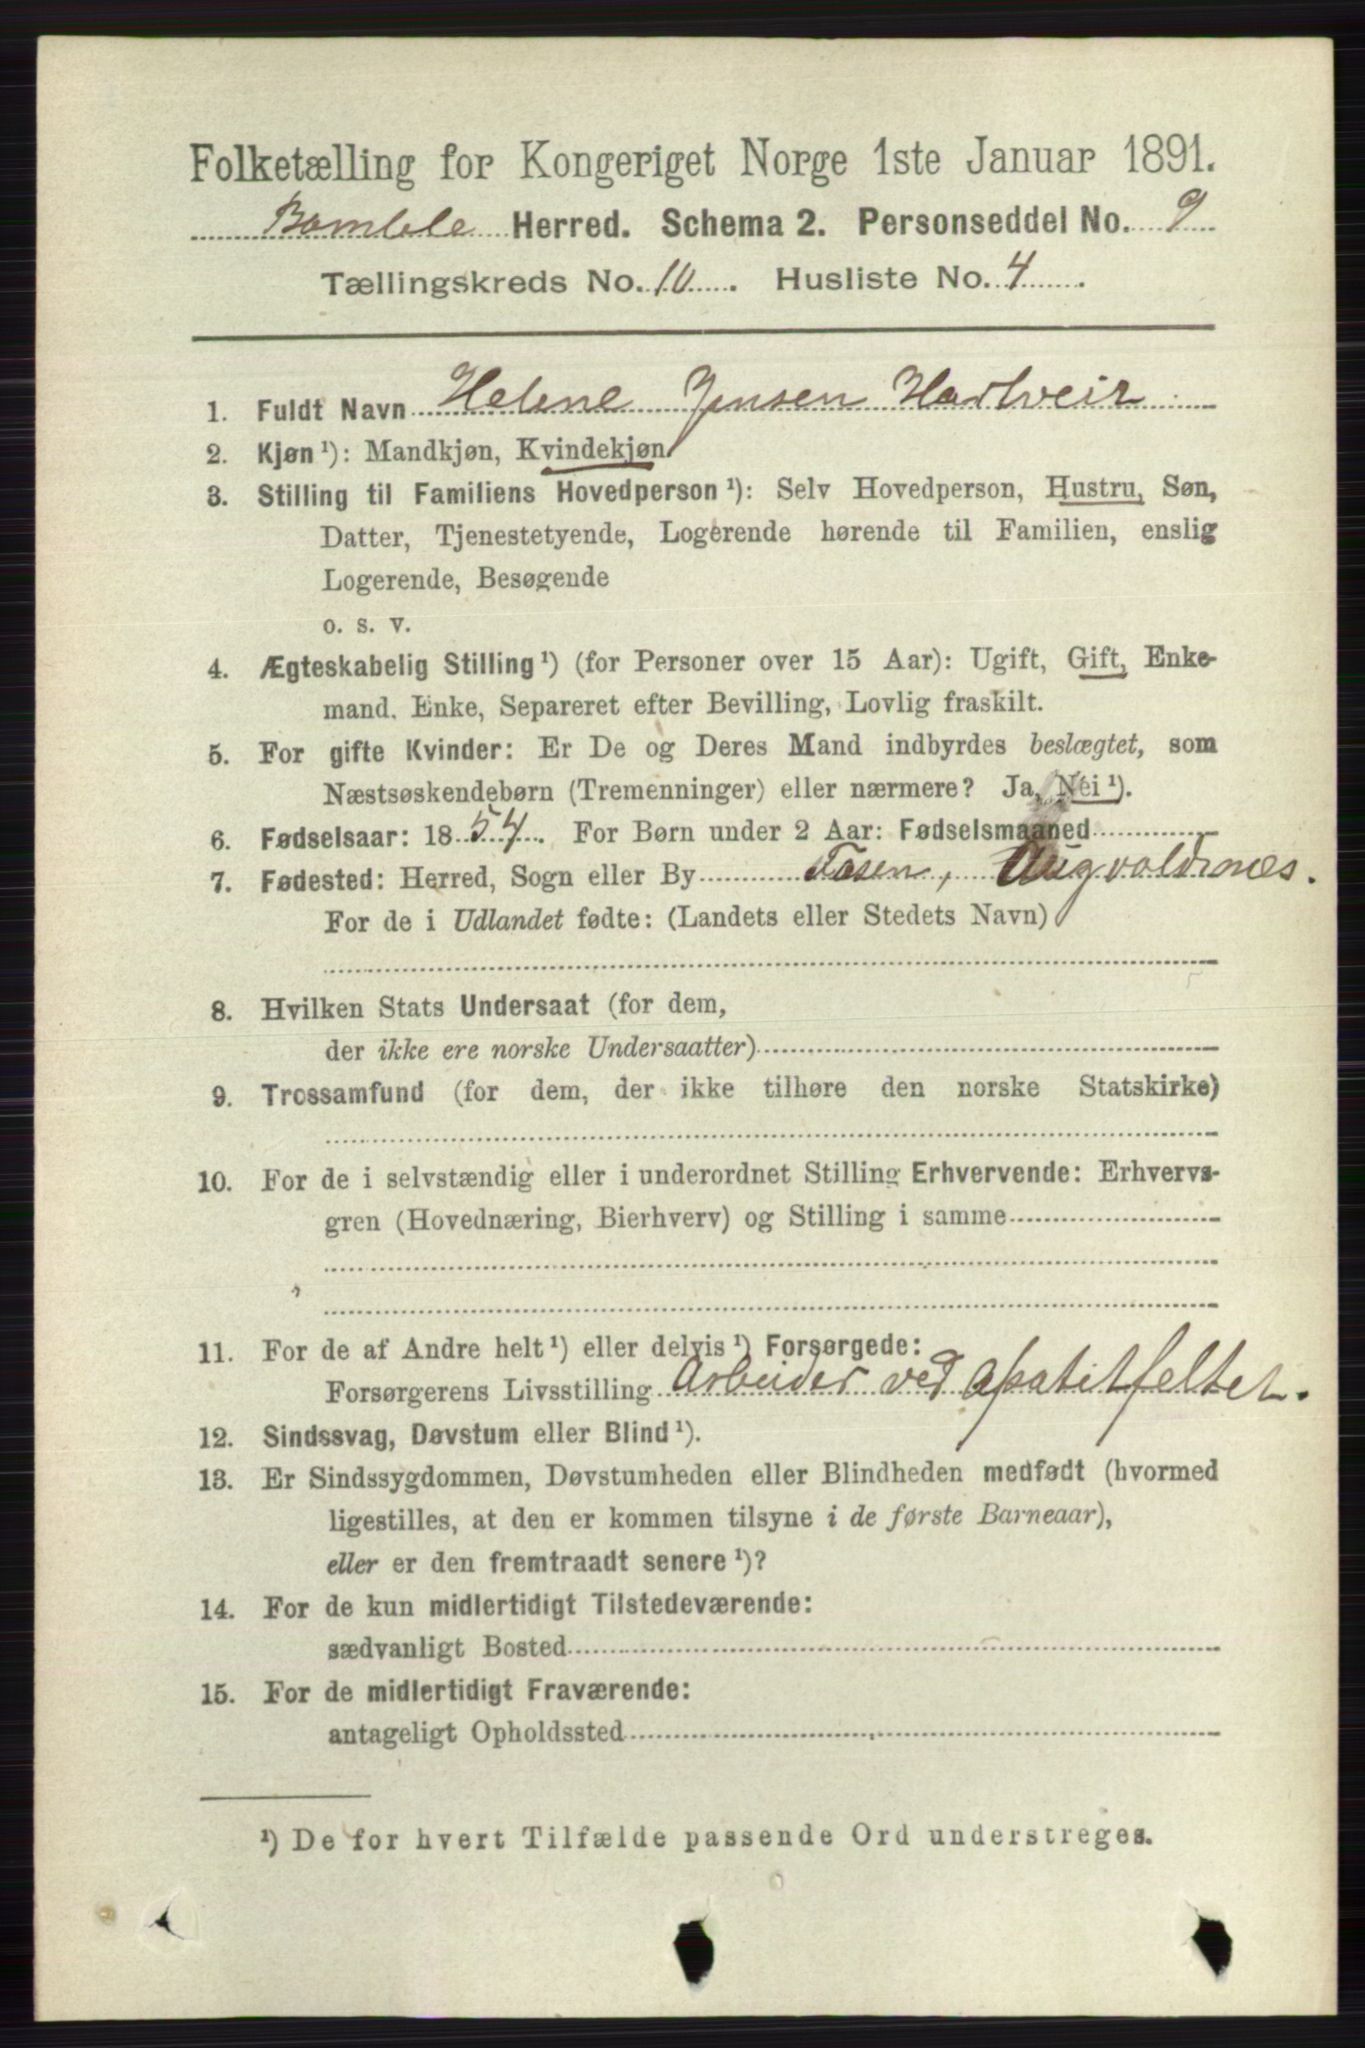 Folketælling for Kongeriget Norge 1ste Januar 1891.
Bamble Herred. Schema 2. Personseddel No. 9
Tællingskreds No. 10. Husliste No. 4.
1. Fuldt Navn Helene Jensen Hartveir
2. Kjøn ¹): Mandkjøn, Kvindekjøn
3. Stilling til Familiens Hovedperson ¹): Selv Hovedperson, Hustru, Søn,
Datter, Tjenestetyende, Logerende hørende til Familien, enslig
Logerende, Besøgende
o. s. v.
4. Ægteskabelig Stilling ¹) (for Personer over 15 Aar): Ugift, Gift, Enke-
mand, Enke, Separeret efter Bevilling, Lovlig fraskilt.
5. For gifte Kvinder: Er De og Deres Mand indbyrdes beslægtet, som
Næstsøskendebørn (Tremenninger) eller nærmere? Ja, Nei ¹).
6. Fødselsaar: 1854. For Børn under 2 Aar: Fødselsmaaned
7. Fødested: Herred, Sogn eller By Tosen, Augvoldsnæs.
For de i Udlandet fødte: (Landets eller Stedets Navn)
8. Hvilken Stats Undersaat (for dem,
der ikke ere norske Undersaatter)
9. Trossamfund (for dem, der ikke tilhøre den norske Statskirke)
10. For de i selvstændig eller i underordnet Stilling Erhvervende: Erhvervs-
gren (Hovednæring, Bierhverv) og Stilling i samme
11. For de af Andre helt ¹) eller delvis ¹) Forsørgede:
Forsørgerens Livsstilling Arbeider ved Apatitfeltet.
12. Sindssvag, Døvstum eller Blind ¹).
13. Er Sindssygdommen, Døvstumheden eller Blindheden medfødt (hvormed
ligestilles, at den er kommen tilsyne i de første Barneaar),
eller er den fremtraadt senere ¹)?
14. For de kun midlertidigt Tilstedeværende:
sædvanligt Bosted
15. For de midlertidigt Fraværende:
antageligt Opholdssted
¹) De for hvert Tilfælde passende Ord understreges.